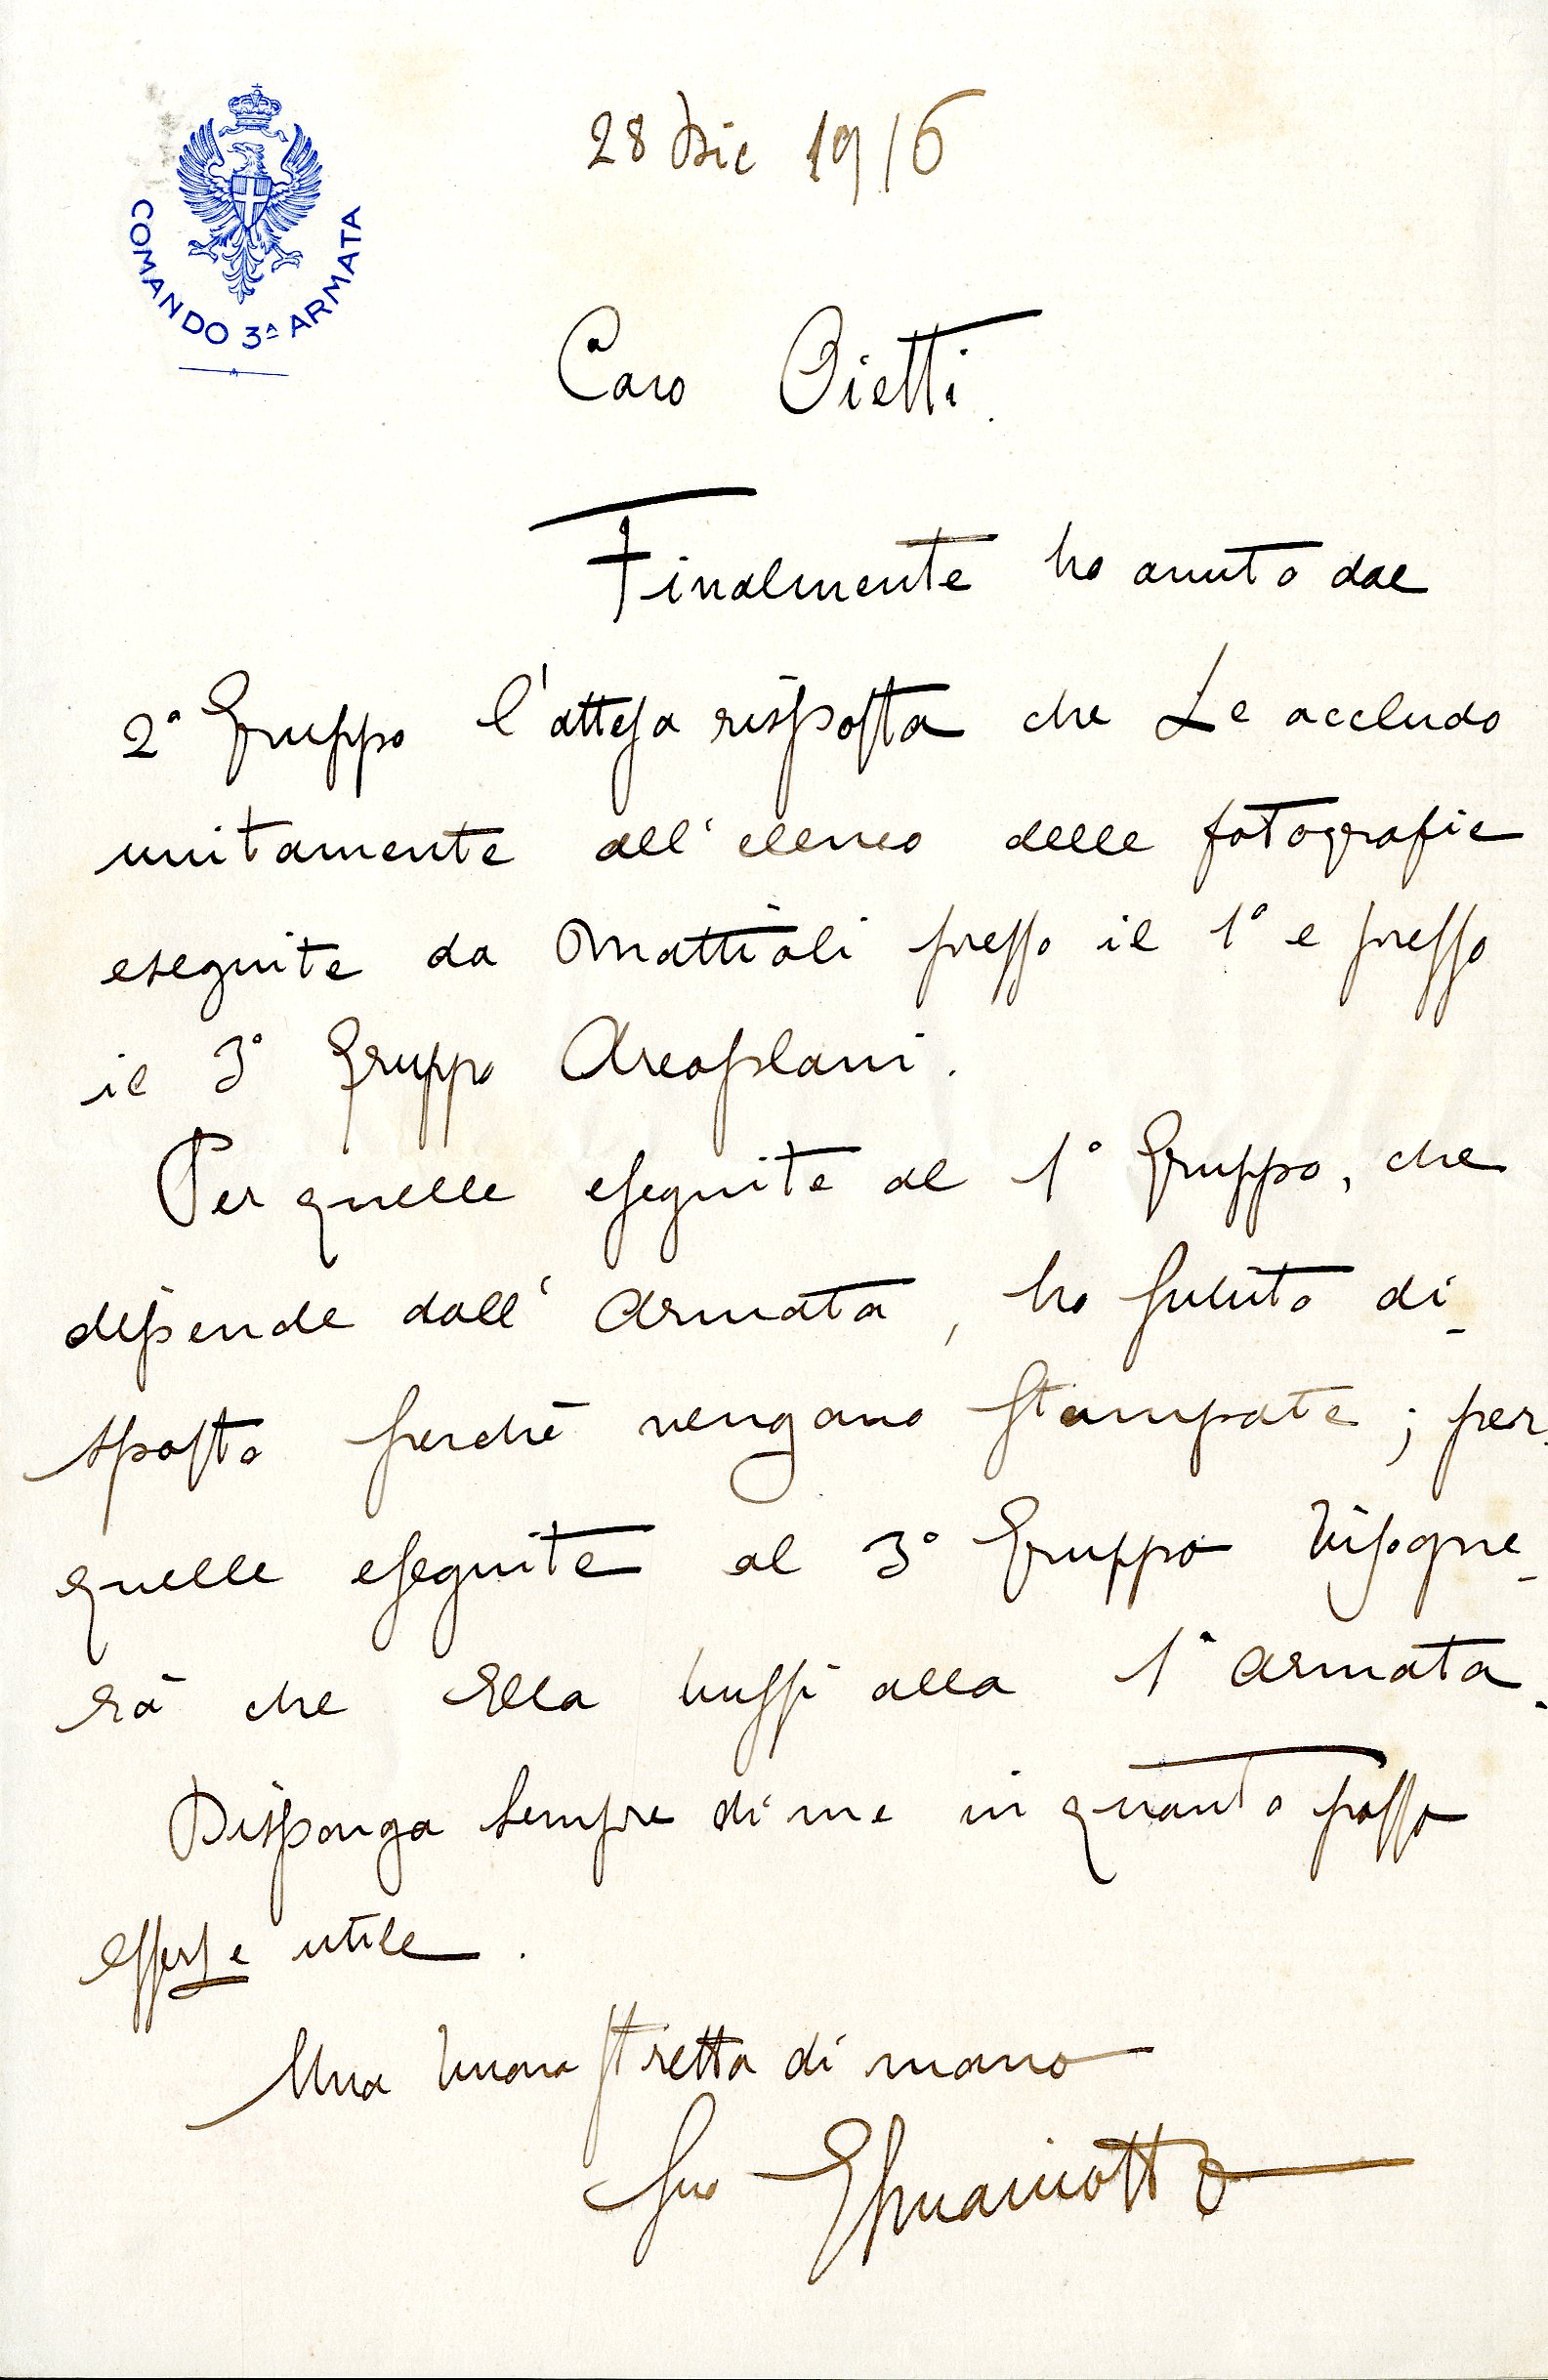 COMANDO 3ª ARMATA
28 Dic 1916
Caro Oietti.
Finalmente ho avuto dal
2° Gruppo l'attesa risposta che Le accludo
unitamente all'elenco delle fotografie
eseguite da Mattioli presso il 1° e presso
il 3° Gruppo Areoplani.
Per quelle eseguite al 1° Gruppo, che
dipende dall'Armata, ho subito di-
sposto perchè vengano stampate; per
quelle eseguite al 3° Gruppo bisogne-
rà che Ella bussi alla 1ª Armata.
Disponga sempre di me in quanto posso
essere utile.
Una buona stretta di mano
Suo